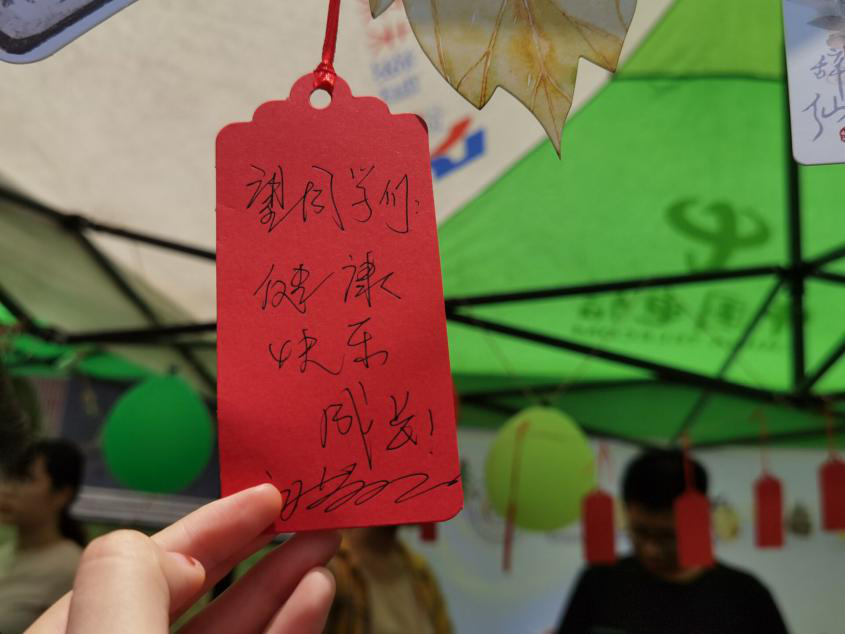 望同学们:
健康
快乐
成长!
辞
仙